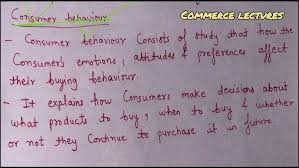 Commerce lectures
Consumer behaviour
- Consumer behaviour Consists of study that how the
Consumer's emotions, attitudes & preferences affect
their buying behaviour.
- It explains how Consumers make decisions about
what products to buy, when to buy & whether
or not they Continue to purchase it in future.